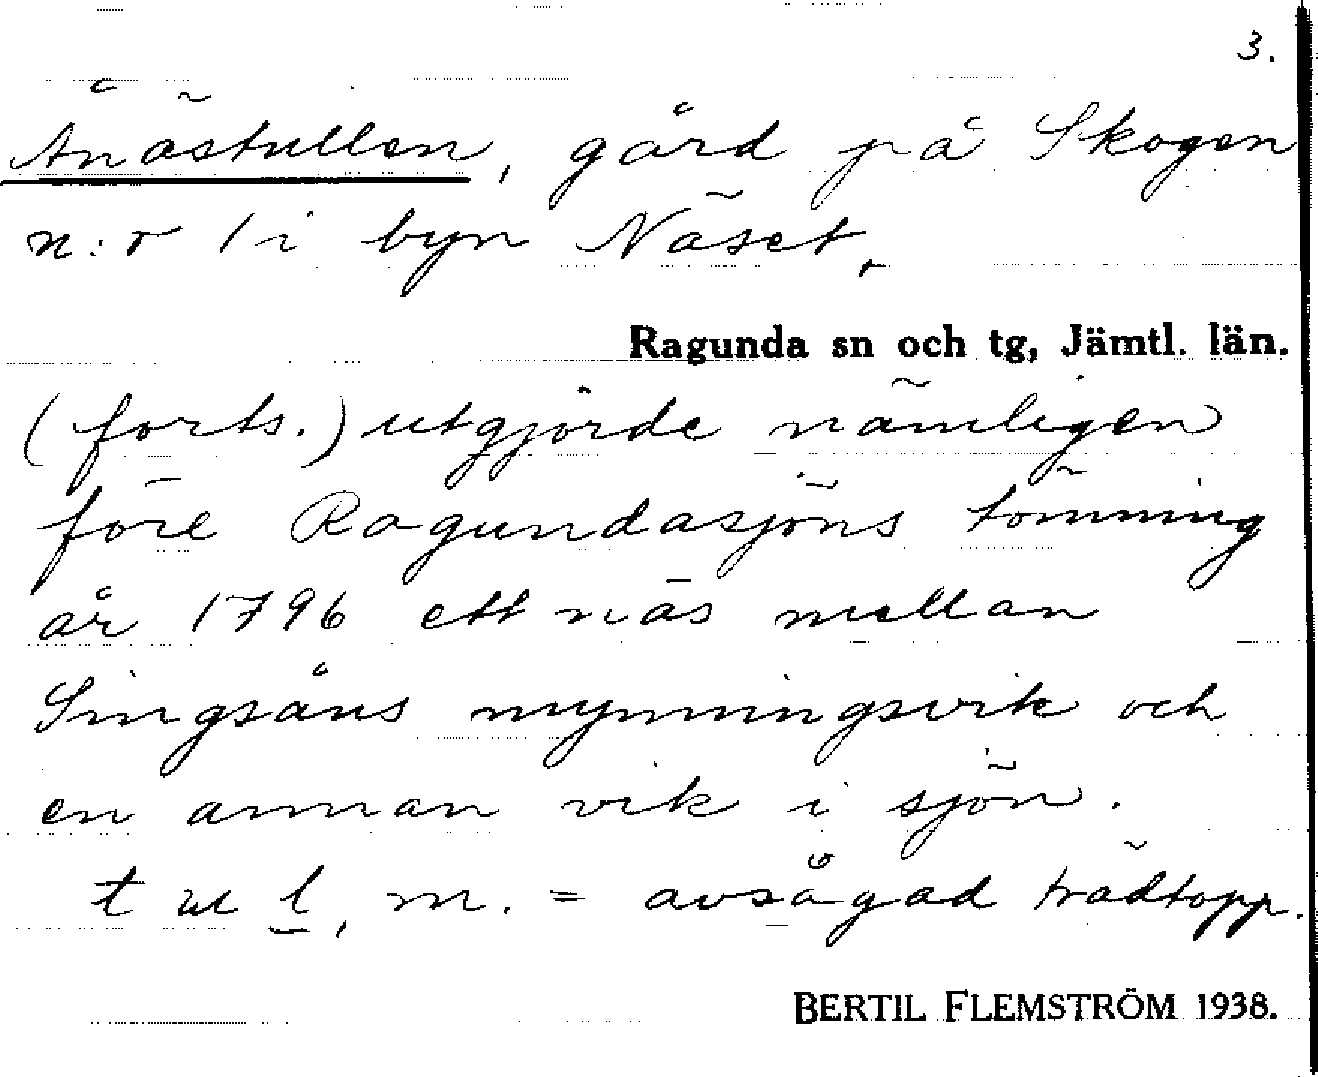 3.
Ånästullen, gård på Skogen
n:r 1 i byn Näset,
Ragunda sn och tg, Jämtl. län.
(forts.) utgjorde nämligen
före Ragundasjöns tömning
år 1796 ett näs mellan
Singsåns mynningsvik och
en annan vik i sjön.
t ul, m. = avsågad trädtopp.
BERTIL FLEMSTRÖM 1938.